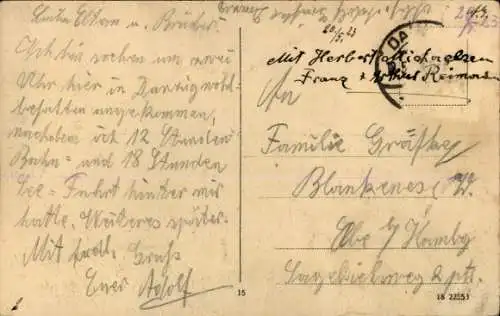 Liebe Eltern u. Brüder!
Ich bin soeben um zwei
Uhr hier in Danzig wohl-
behalten angekommen,
nachdem ich 12 Stunden
Bahn- und 18 Stunden
See-Fahrt hinter mir
hatte. Weiteres später.
Mit frdl. Gruß
Euer Adolf
20/5.23
Mit Herbert
Franz + Reimann
DA
An
Familie Gräfke
Blankenese W.
Elbe b/ Hambg
2 ptr.
15
18 22553